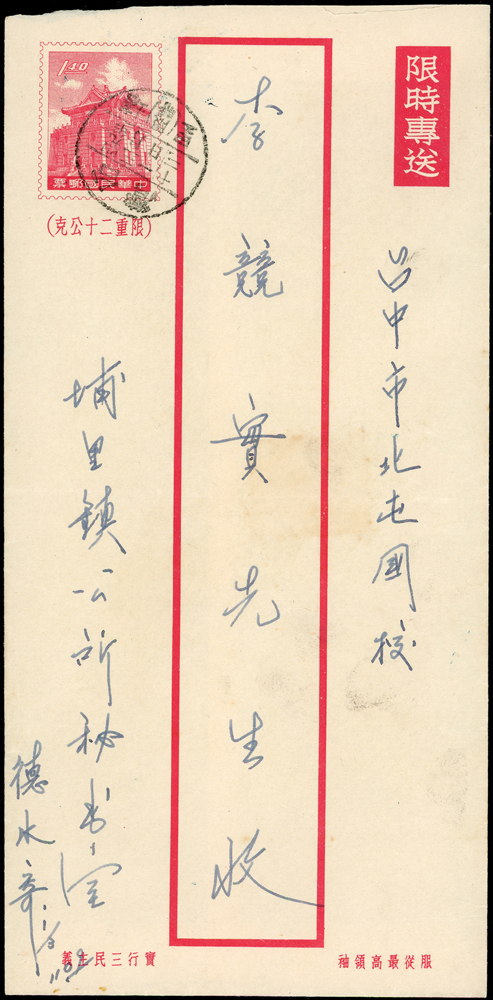 限時專送
台中市北屯國校
李競實先生收
1.40
中華民國郵票
(限重二十公克)
埔里鎮公所秘书室
德水寄
服從最高領袖
實行三民主義